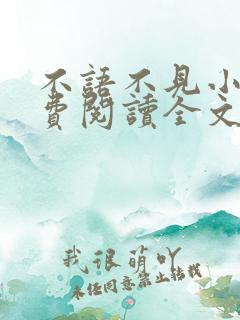 不語不見小
費閱讀全文
我很萌吖
未经同意禁止转载